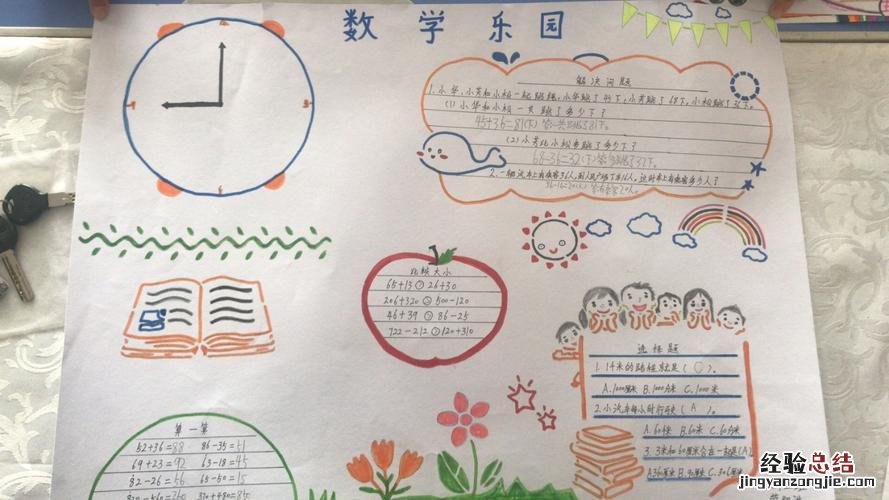 数学乐园
解决问题
1.小华,小芳和小松一起跳绳,小华跳了45下,小芳跳了68下,小松跳了36下。
(1)小华和小松一共跳了多少下?
45+36=81(下)
(2)小芳比小松多跳了多少下?
68-36=32(下)
2.一辆汽车上有乘客36人,到人民广场下车16人,这时车上有乘客多少人?
36-16=20(人)
比较大小
65+13>26+30
206+320>500-120
46+39>86-25
722-212>120+310
选择题
1.14米的路程就是(C)。
A.1000厘米 B.1000分米 C.1000米
2.小汽车每小时行驶(A)。
A.60千米 B.60米 C.60分米
3.3米和60厘米合在一起是(A)
A.360厘米 B.90厘米 C.306厘米
算一算
52+36=88 86-35=51
69+23=92 63-18=45
82-26=56 65-50=15
经验总结
jingyanzongjie.com